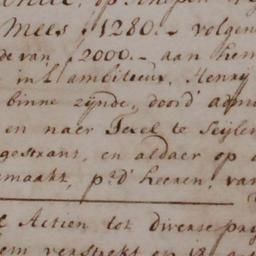 op Schepen
Mees ƒ 1280.- volgen
de van ƒ 2000.- aan hem
in L'ambiteeux, Henrij
binne zijnde, door d' admi
en naer Texel te Seijlen
gestrant, en aldaer op d
emaakt, p.r d' heeren, van
Actien tot diverse prij
em verstrekt en is